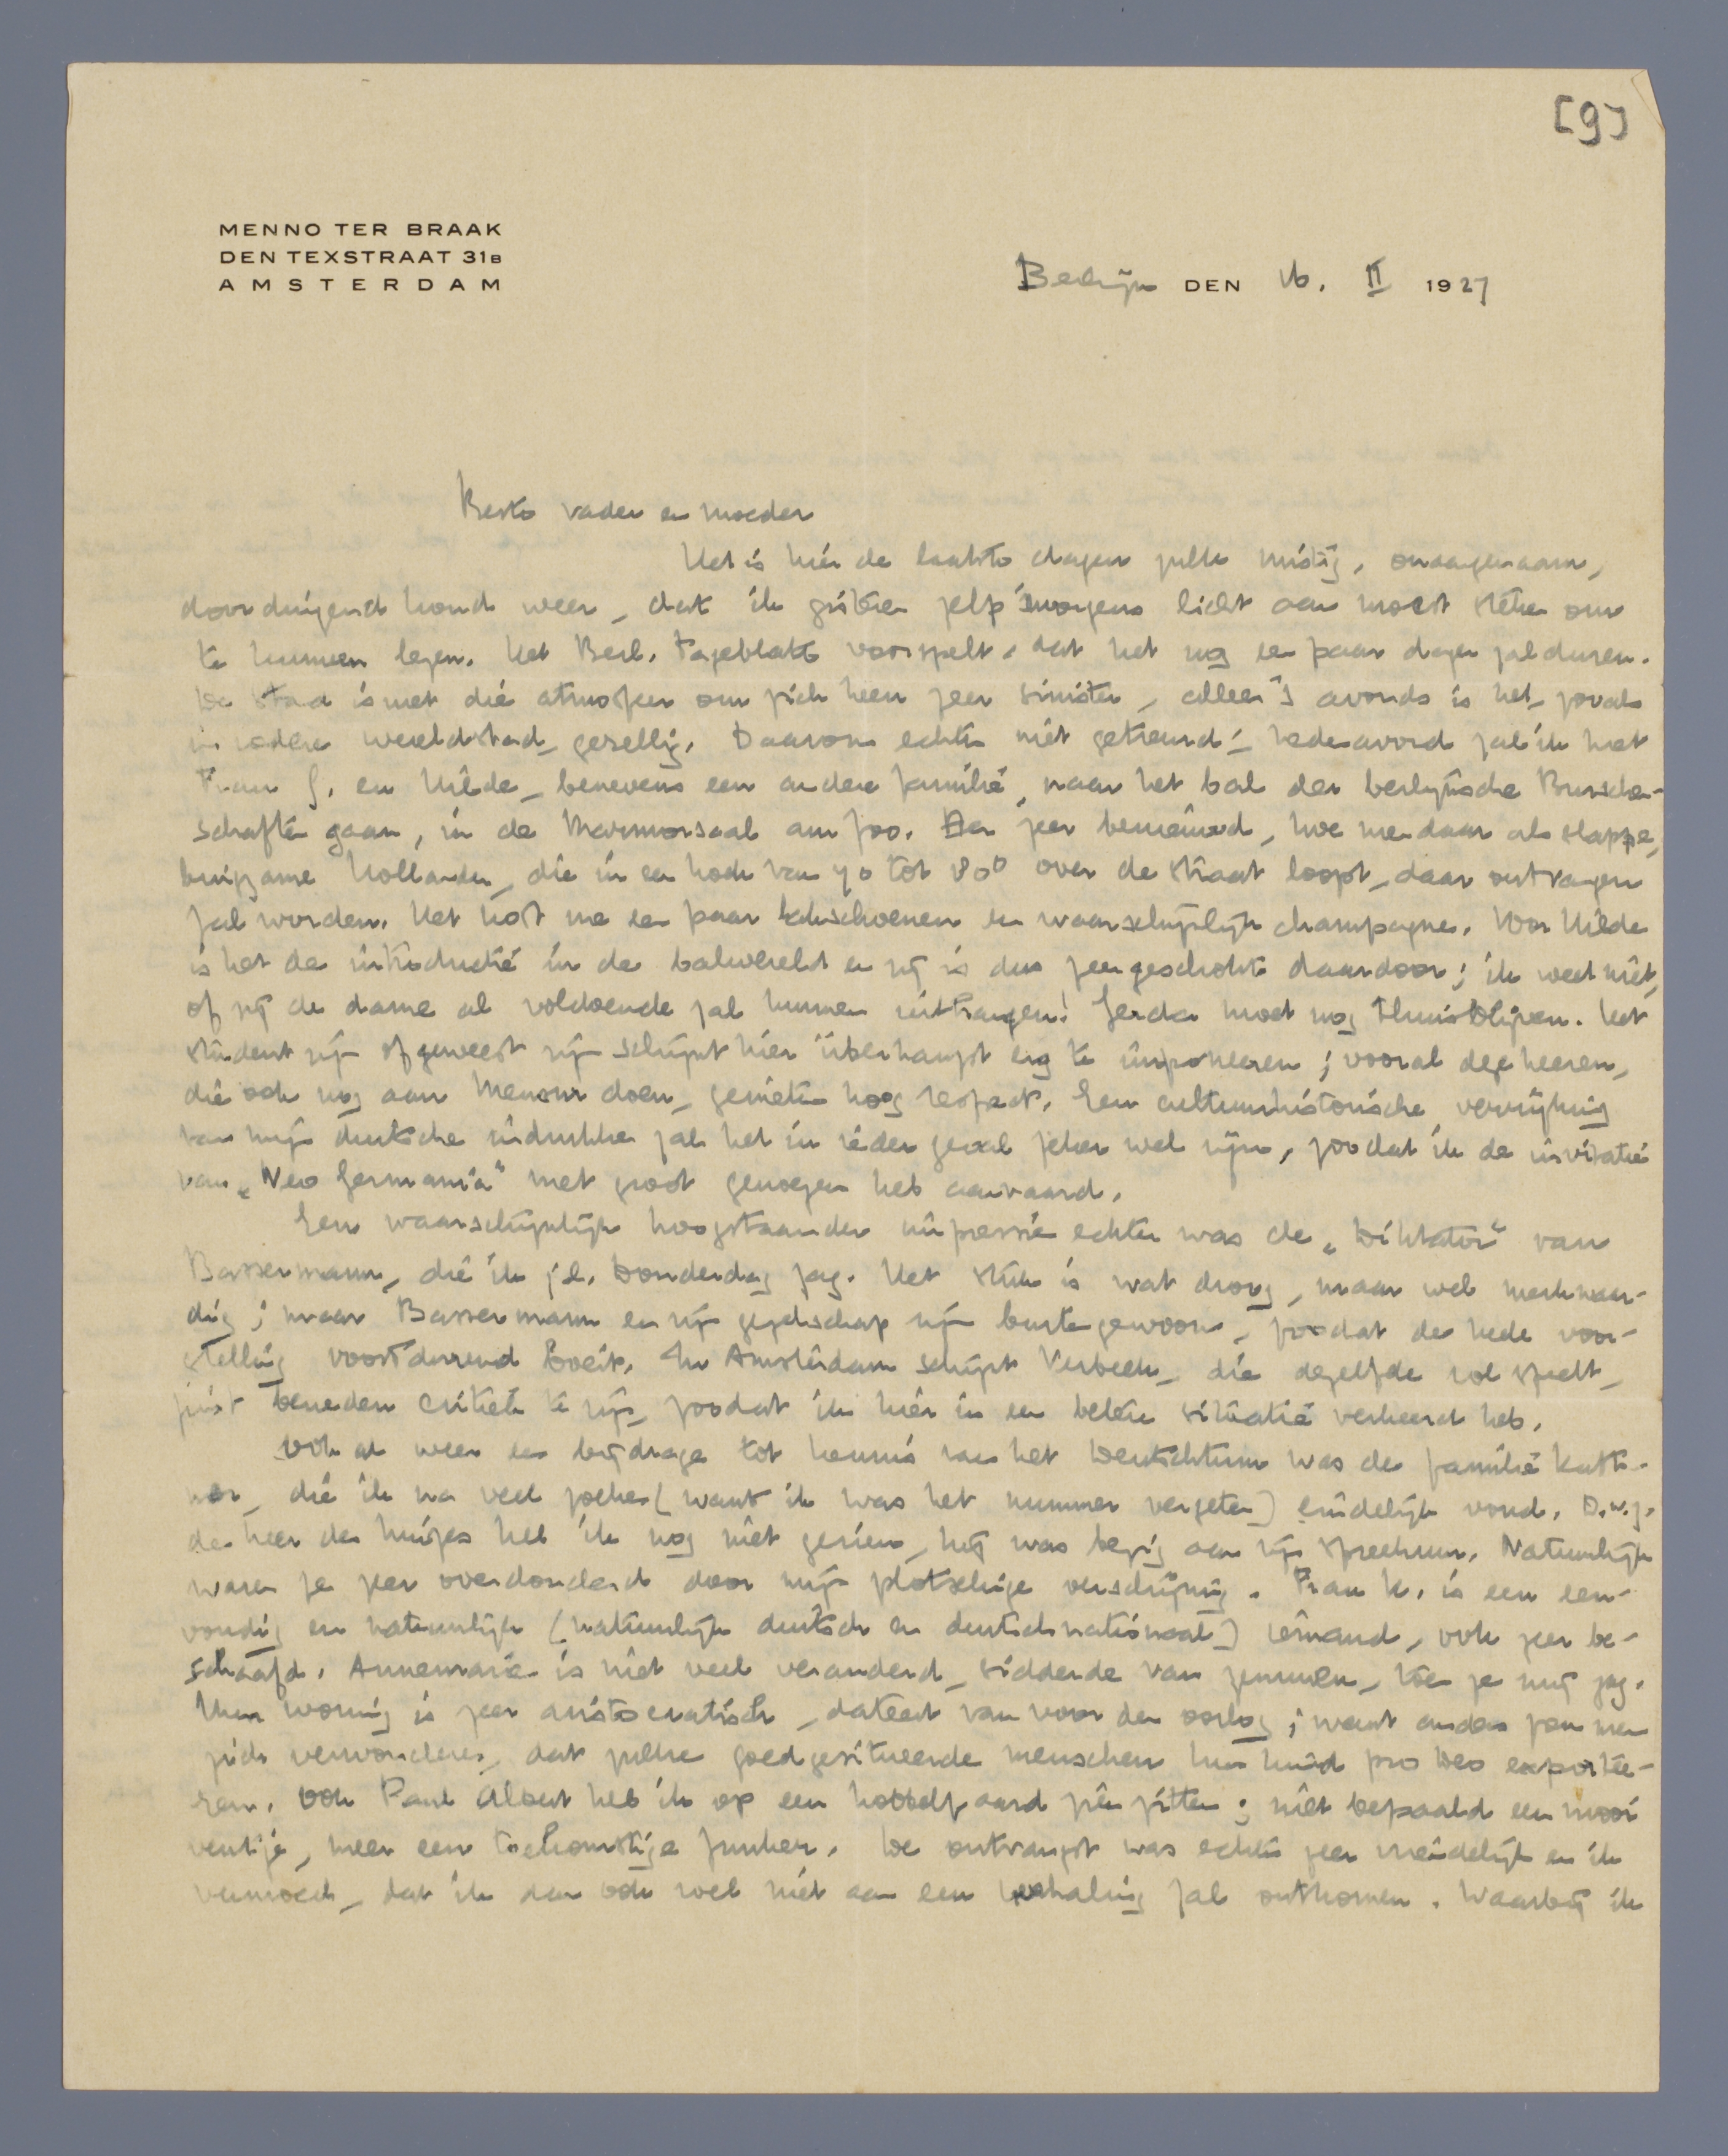 [9]
MENNO TER BRAAK
DEN TEXSTRAAT 31B
AMSTERDAM
Berlijn DEN 16. II 1927
Beste vader en moeder
Het is hier de laatste dagen zulk mistig, onaangenaam,
doordringend koud weer, dat ik gisteren zelfs 's morgens licht aan moest steken om
te kunnen lezen. Het Berl. Tageblatt voorspelt, dat het nog een paar dagen zal duren.
De stad is met die atmosfeer om zich heen zeer sinister, alleen 's avonds is het, zooals
in iedere wereldstad, gezellig. Daarom echter niet getreurd: hedenavond zal ik met
Frau G. en Hilde, benevens een andere familie, naar het bal der berlijnsche Burschen-
schaften gaan, in de Marmorsaal am Zoo. Ben zeer benieuwd, hoe men daar als slappe,
buigzame Hollander, die in een hoek van 70 tot 80° over de straat loopt, daar ontvangen
zal worden. Het kost me een paar lakschoenen en waarschijnlijk champagne. Voor Hilde
is het de introductie in de balwereld en zij is dus zeer geschokt daardoor; ik weet niet,
of zij de dame al voldoende zal kunnen uithangen! Gerda moet nog thuisblijven. Het
student zijn of geweest zijn schijnt hier überhaupt erg te imponeeren; vooral deze heeren,
die ook nog aan Mensur doen, genieten hoog respect. Een cultuurhistorische verrijking
van mijn duitsche indrukken zal het in ieder geval zeker wel zijn, zoodat ik de invitatie
van „Neo Germania" met groot genoegen heb aanvaard.
Een waarschijnlijk hoogstaander impressie echter was de „Diktator" van
Bassermann, die ik j.l. Donderdag zag. Het stuk is wat droog, maar wel merkwaar-
dig; maar Bassermann en zijn gezelschap zijn buitengewoon, zoodat de heele voor-
stelling voortdurend boeit. In Amsterdam schijnt Verbeek, die dezelfde rol speelt,
juist beneden critiek te zijn, zoodat ik hier in een betere situatie verkeerd heb.
Ook al weer een bijdrage tot kennis van het Deutschtum was de familie
die ik na veel zoeken (want ik was het nummer vergeten) eindelijk vond. D.w.z.
de heer des huizes heb ik nog niet gezien, hij was bezig aan zijn spreekuur. Natuurlijk
waren ze zeer overdonderd door mijn plotselinge verschijning. Frau K. is een een-
voudig en natuurlijk (natuurlijk duitsch en deutschnational) iemand, ook zeer be-
schaafd. Annemarie is niet veel veranderd, sidderde van zenuwen, toen ze mij zag.
Hun woning is zeer aristocratisch, dateert van voor den oorlog; want anders zou men
zich verwonderen, dat zulke goedgesitueerde menschen hun kind pro Deo exportee-
ren. Ook Paul Albert heb ik op een hobbelpaard zien zitten; niet bepaald een mooi
ventje, meer een toekomstige Junker. De ontvangst was echter zeer vriendelijk en ik
vermoed, dat ik dan ook wel niet aan een herhaling zal ontkomen. Waarbij ik